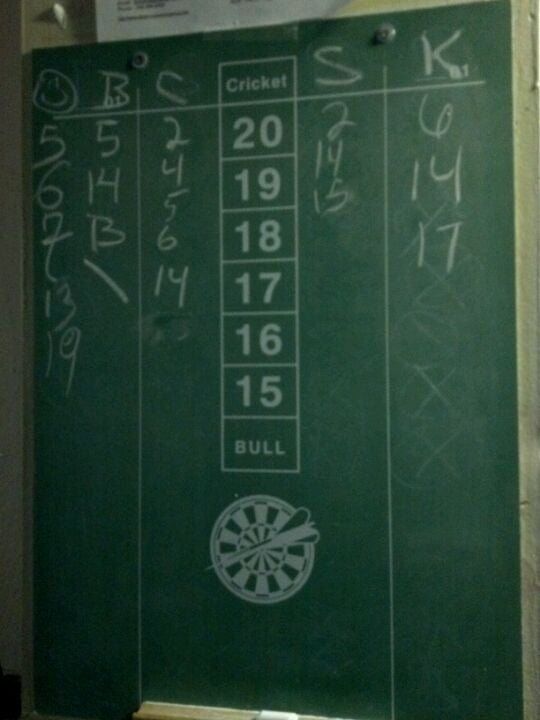 B C Cricket S K
5 5 2 20 2 6
6 14 4 19 14 14
7 B 5 18 15 17
6 17
13 14 16
19 15
BULL